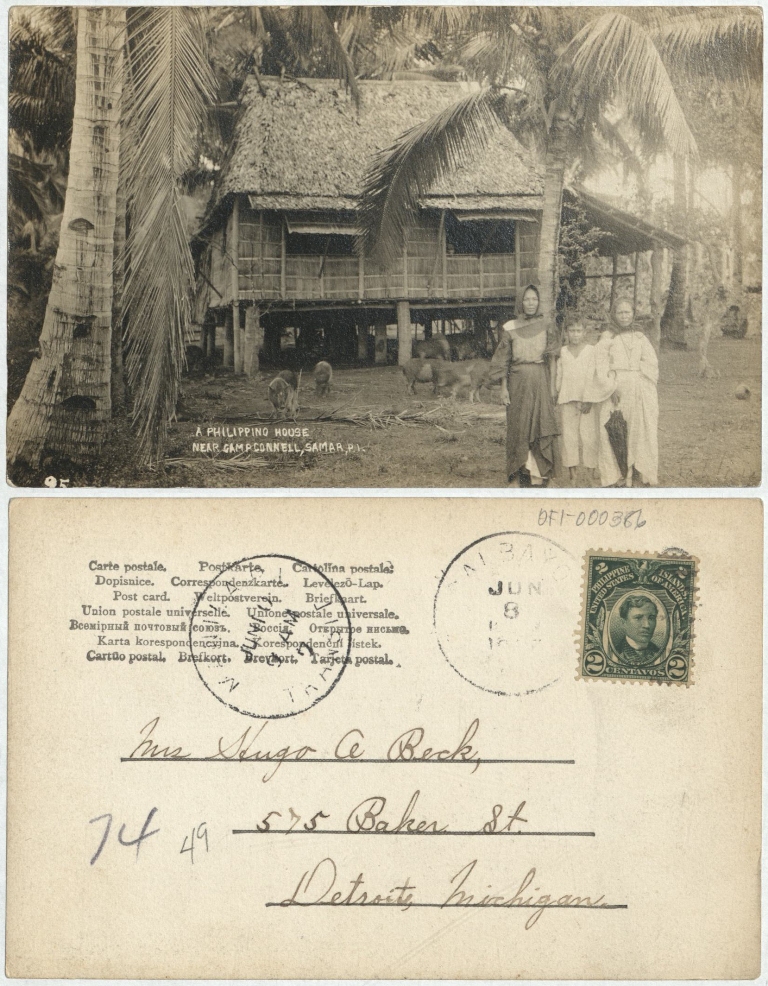 A PHILIPPINO HOUSE
NEAR CAMP CONNELL, SAMAR, P.I.
95
DFI-000386
Carte postale. Postkarte. Cartolina postale.
Dopisnice. Correspondenzkarte. Levelező-Lap.
Post card. Weltpostverein. Briefkaart.
Union postale universelle. Unione postale universale.
Всемірный почтовый союзъ. Россія. Открытое письмо.
Karta korespondencyjna. Korespondenční lístek.
Cartão postal. Brefkort. Brevkort. Tarjeta postal.
MANILA
JUN 11
AM
TRANSIT
CALBAYOG
JUN
8
PHILIPPINE ISLANDS
UNITED STATES OF AMERICA
2 CENTAVOS 2
Mrs Hugo A Beck,
575 Baker St.
Detroit, Michigan.
74 49